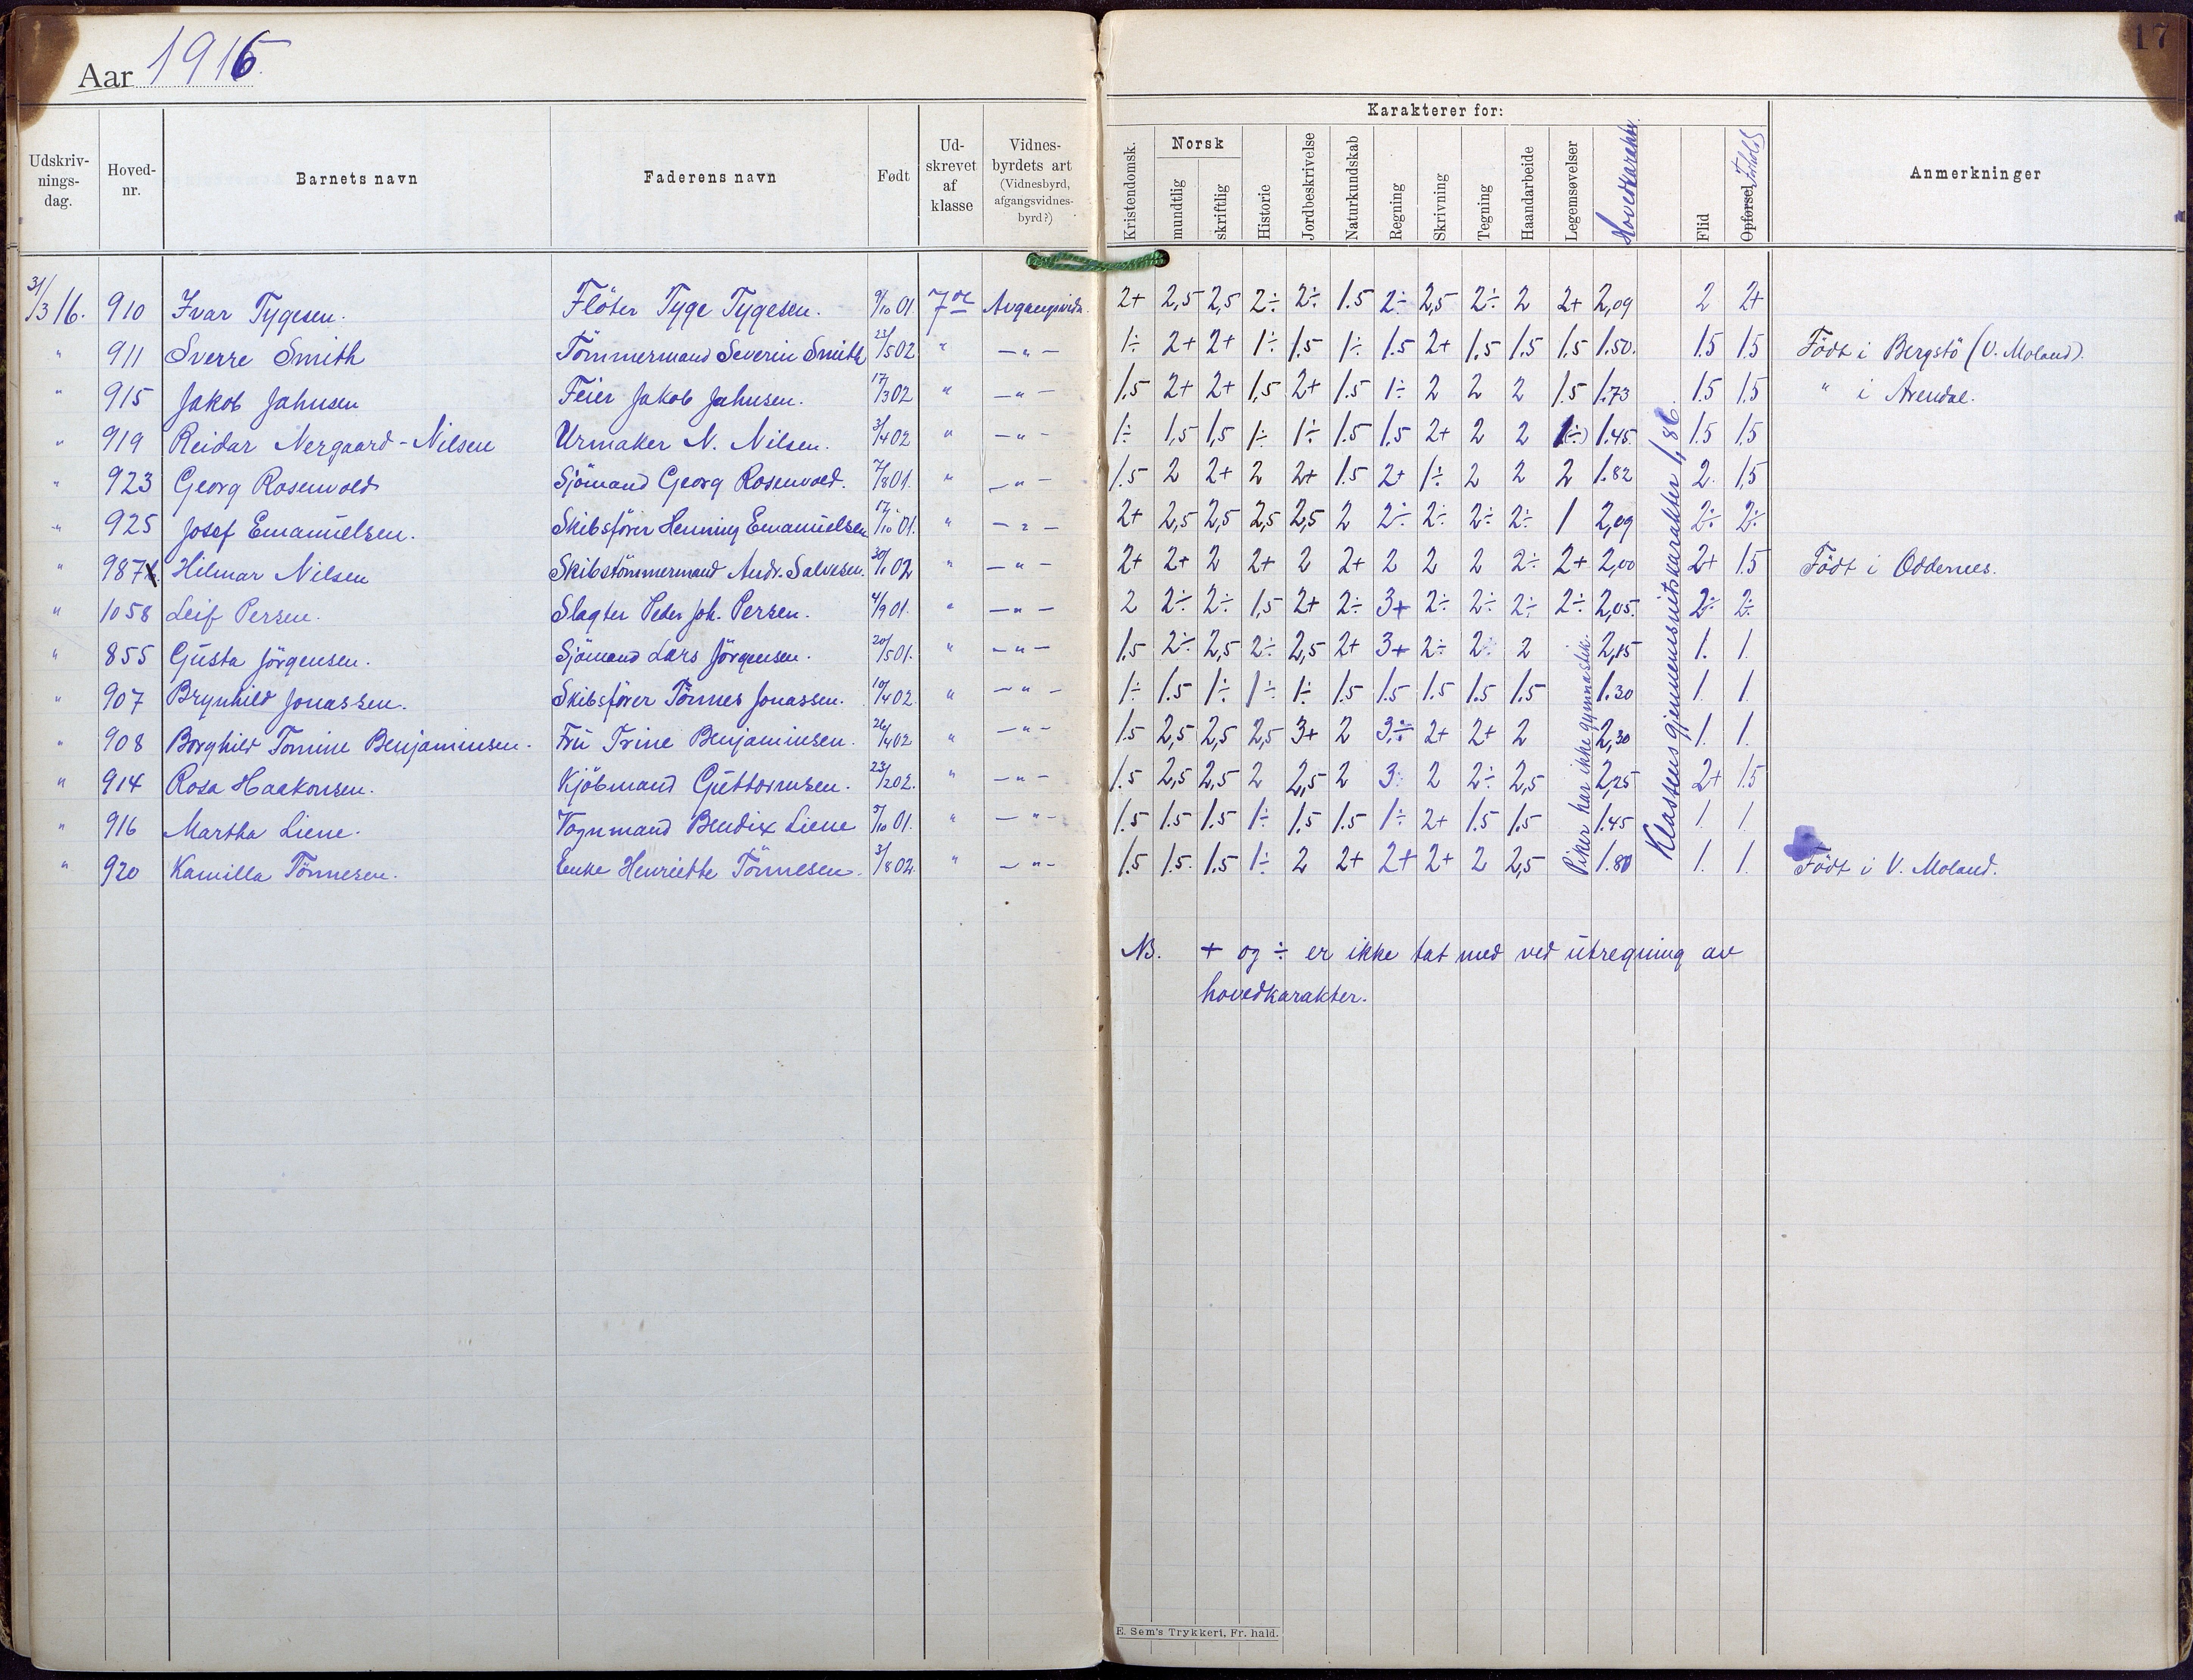 Aar 1916.
17
Udskriv-nings-dag. Hoved-nr. Barnets navn Faderens navn Født Ud-skrevet af klasse Vidnes-byrdets art (Vidnesbyrd, afgangsvidnes-byrd?) Karakterer for: Kristendomsk. Norsk mundtlig skriftlig Historie Jordbeskrivelse Naturkundskab Regning Skrivning Tegning Haandarbeide Legemsøvelser Hovedkarakter. Flid Opførsel Forhold Anmerkninger
31/3 16. 910 Ivar Tygesen. Flöter Tyge Tygesen. 9/10 01. 7de Avgangsvidn. 2+ 2,5 2,5 2÷ 2÷ 1.5 2÷ 2,5 2÷ 2 2+ 2,09 2 2+
" 911 Sverre Smith Tömmermand Severin Smith 23/5 02 " -"- 1÷ 2+ 2+ 1÷ 1.5 1÷ 1.5 2+ 1.5 1.5 1.5 1.50. 1.5 1.5 Födt i Bergstö (V. Moland).
" 915 Jakob Jahnsen Feier Jakob Jahnsen. 17/3 02 " -"- 1.5 2+ 2+ 1,5 2+ 1.5 1÷ 2 2 2 1.5 1.73 1.5 1.5 " i Arendal.
" 919 Reidar Nergaard-Nilsen Urmaker N. Nilsen. 3/4 02 " -"- 1÷ 1,5 1,5 1÷ 1÷ 1.5 1.5 2+ 2 2 1(÷) 1.45. 1.5 1.5
" 923 Georg Rosenvold Sjömand Georg Rosenvold. 7/8 01. " -"- 1.5 2 2+ 2 2+ 1.5 2+ 1÷ 2 2 2 1.82 2. 1,5
" 925 Josef Emanuelsen. Skibsförer Henning Emanuelsen 17/10 01. " -"- 2+ 2,5 2,5 2,5 2,5 2 2÷ 2÷ 2÷ 2÷ 1 2,09 2÷ 2÷
" 987 Hilmar Nilsen Skibstömmermand Andr. Salvesen. 30/1 02 " -"- 2+ 2+ 2 2+ 2 2+ 2 2 2 2÷ 2+ 2,00 2+ 1.5 Födt i Oddernes.
" 1058 Leif Persen. Slagter Peder Joh. Persen. 4/9 01. " -"- 2 2÷ 2÷ 1,5 2+ 2÷ 3+ 2÷ 2÷ 2÷ 2÷ 2,05. 2÷ 2÷
" 855 Gusta Jörgensen. Sjömand Lars Jörgensen. 20/5 01. " -"- 1.5 2÷ 2,5 2÷ 2,5 2+ 3+ 2÷ 2÷ 2 2,15 1. 1.
" 907 Brynhild Jonassen. Skibsförer Tönnes Jonassen. 10/4 02. " -"- 1÷ 1.5 1÷ 1÷ 1÷ 1.5 1.5 1.5 1.5 1.5 1.30 1. 1.
" 908 Borghild Tomine Benjaminsen. Fru Trine Benjaminsen. 26/4 02 " -"- 1.5 2,5 2,5 2,5 3+ 2 3÷ 2+ 2+ 2 2,30 1. 1.
" 914 Rosa Haakonsen. Kjöbmand Guttormsen. 23/2 02. " -"- 1.5 2,5 2,5 2 2,5 2 3÷ 2 2÷ 2,5 2,25 2+ 1.5
" 916 Martha Liene. Vognmand Bendix Liene 9/10 01. " -"- 1.5 1.5 1.5 1÷ 1.5 1.5 1÷ 2+ 1.5 1.5 1.45 1. 1.
" 920 Kamilla Tönnesen. Enke Henriette Tönnesen. 3/8 02. " -"- 1.5 1.5. 1.5 1÷ 2 2+ 2+ 2+ 2 2,5 1.80 1. 1. Födt i V. Moland.
Piker har ikke gymnastik.
Klassens gjennemsnitskarakter 1,86.
NB. + og ÷ er ikke tat med ved utregning av
hovedkarakter.
E. Sem's Trykkeri, Fr. hald.